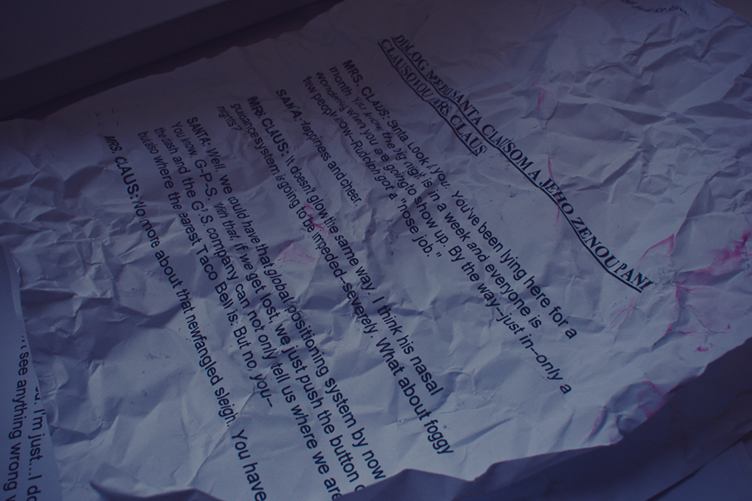 MRS. CLAUS: Santa Look you. You've been lying here for a
month. The big night is in a week and everyone is
wondering when you are going to show up. By the way–just in–only a
few people know–Rudolph got a "nose job."
SANTA: Happiness and cheer.
MRS. CLAUS: It doesn't glow the same way. I think his nasal
guidance system is going to be impeded, severely. What about foggy
nights?
SANTA: Well, we could have that global positioning system by now
You know, G-P-S. With that, if we get lost, we just push the button
the dash and the G.P.S company can not only tell us where we are
but also where the nearest Taco Bell is. But no, you–
MRS CLAUS: No more about that newfangled sleigh. You have
I'm just... I
... see anything wrong